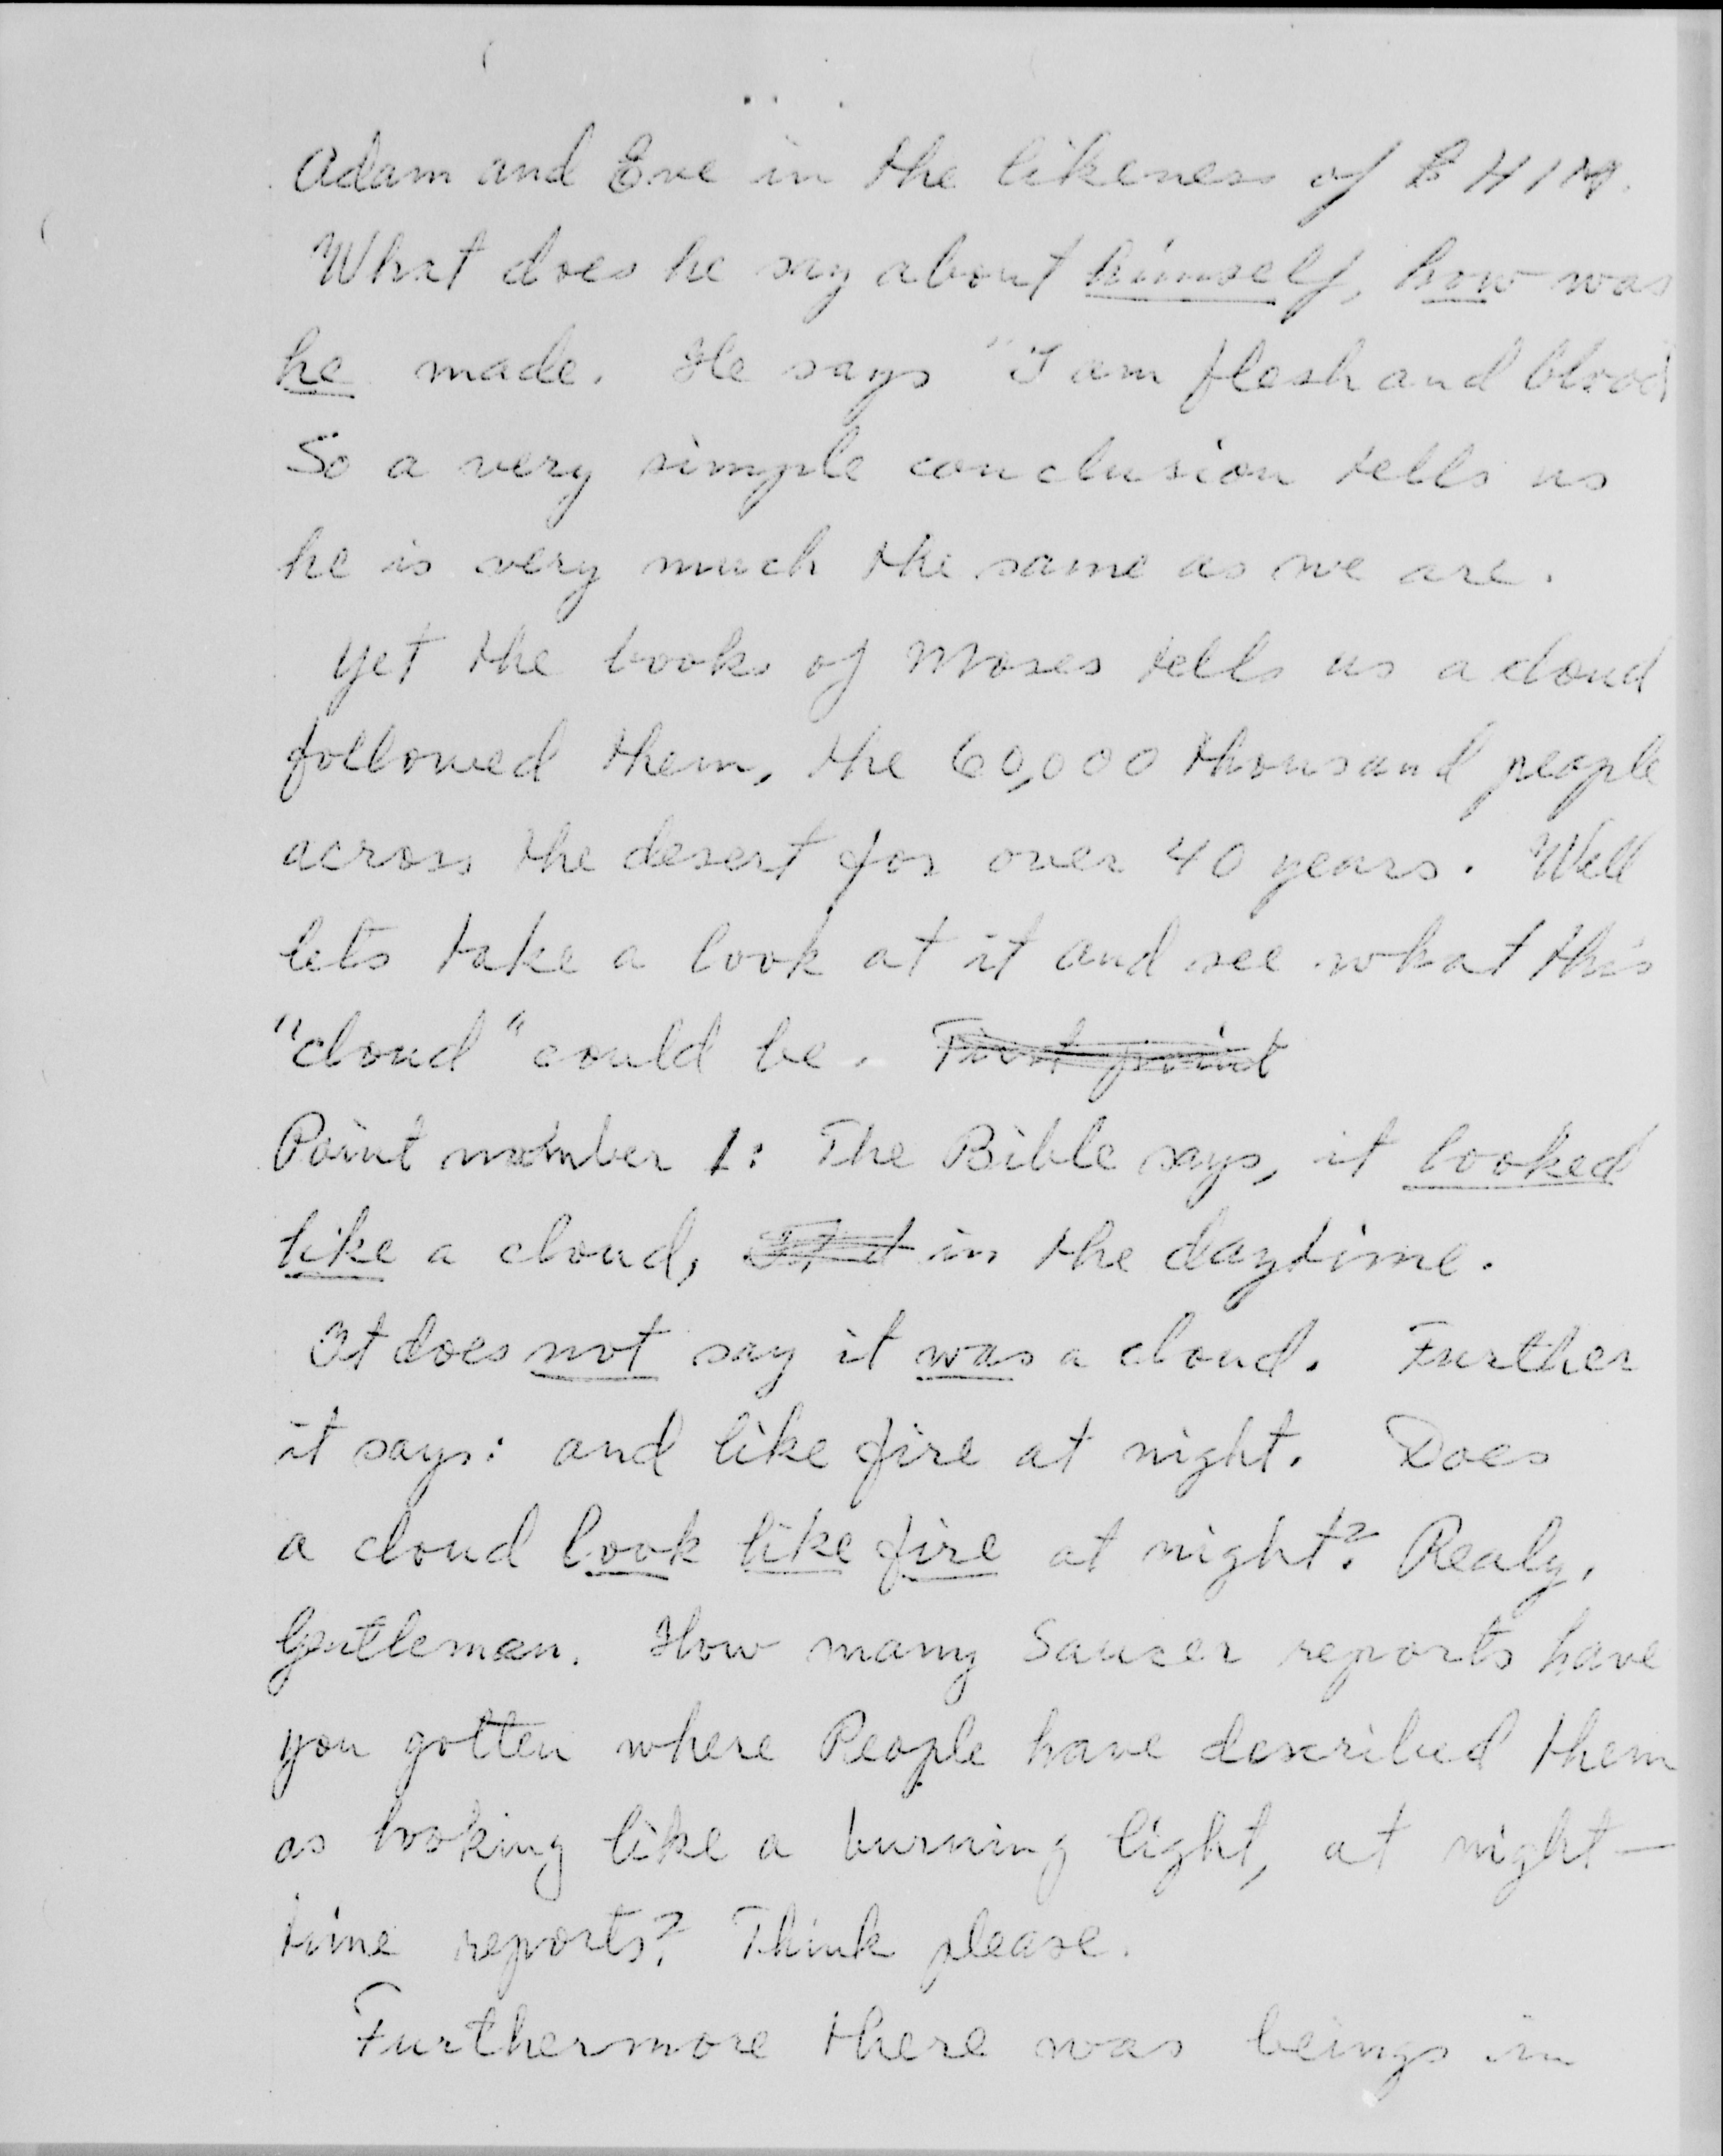 Adam and Eve in the likeness of HIM.
What does he say about himself, how was
he made. He says "I am flesh and blood
So a very simple conclusion tells us
he is very much the same as we are.
Yet the books of Moses tells us a cloud
followed them, the 60,000 thousand people
across the desert for over 40 years. Well
lets take a look at it and see what this
"cloud" could be. First point
Point number 1: The Bible says, it looked
like a cloud, in the daytime.
It does not say it was a cloud. Further
it says: and like fire at night. Does
a cloud look like fire at night? Realy,
Gentleman. How many Saucer reports have
you gotten where People have described them
as looking like a burning light, at night-
time reports? Think please.
Furthermore there was beings in